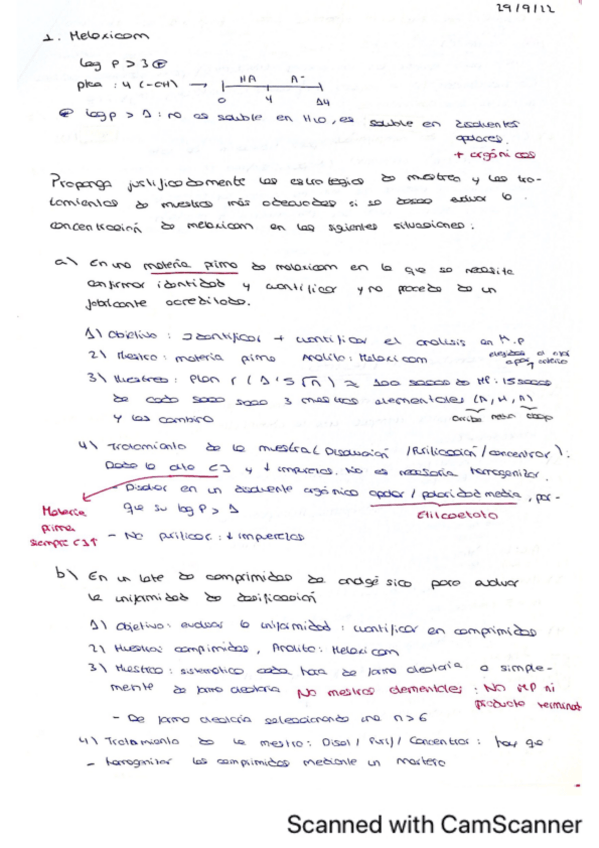 29/9/22
1. Meloxicam
log P > 3 ⊕
pka : 4 (-OH) → HA A-
0 4 14
⊕ log p > 1 : no es soluble en H2O, es soluble en disolventes
apolares.
+ orgánicos
Proponga justificadamente las estrategias de muestreo y los tra-
tamientos de muestra más adecuados si se desea evaluar la
concentración de meloxicam en las siguientes situaciones:
a) En una materia prima de meloxicam en la que se necesita
confirmar identidad y cuantificar y no procede de un
fabricante acreditado.
1) Objetivo : identificar + cuantificar el análisis en M.P
2) Muestra : materia prima Analito : Meloxicam
3) Muestreo : Plan r (1'5√n) ≈ 100 sacos de MP : 15 sacos
de cada saco saco 3 muestras elementales
y las combino
4) Tratamiento de la muestra (Disolución / Purificación / concentrar) :
Dada la alta C3 y ↓ impurezas. No es necesaria homogenizar.
- Disolver en un disolvente orgánico apolar / polaridad media, por-
que su log P > 1
Etilacetato
Materia
prima
siempre C3↑
- No purificar : ↓ impurezas
b) En un lote de comprimidos de analgésico para evaluar
la uniformidad de dosificación
1) Objetivo : evaluar la uniformidad : cuantificar en comprimidos
2) Muestra : comprimidos, Analito : Meloxicam
3) Muestreo : sistemático cada hora de forma aleatoria o simple-
mente de forma aleatoria No muestras elementales : No MP ni
producto terminat
- De forma aleatoria seleccionando una n > 6
4) Tratamiento de la muestra : Disol / Purif / Concentrar : hay que
- homogenizar los comprimidos mediante un mortero
Scanned with CamScanner